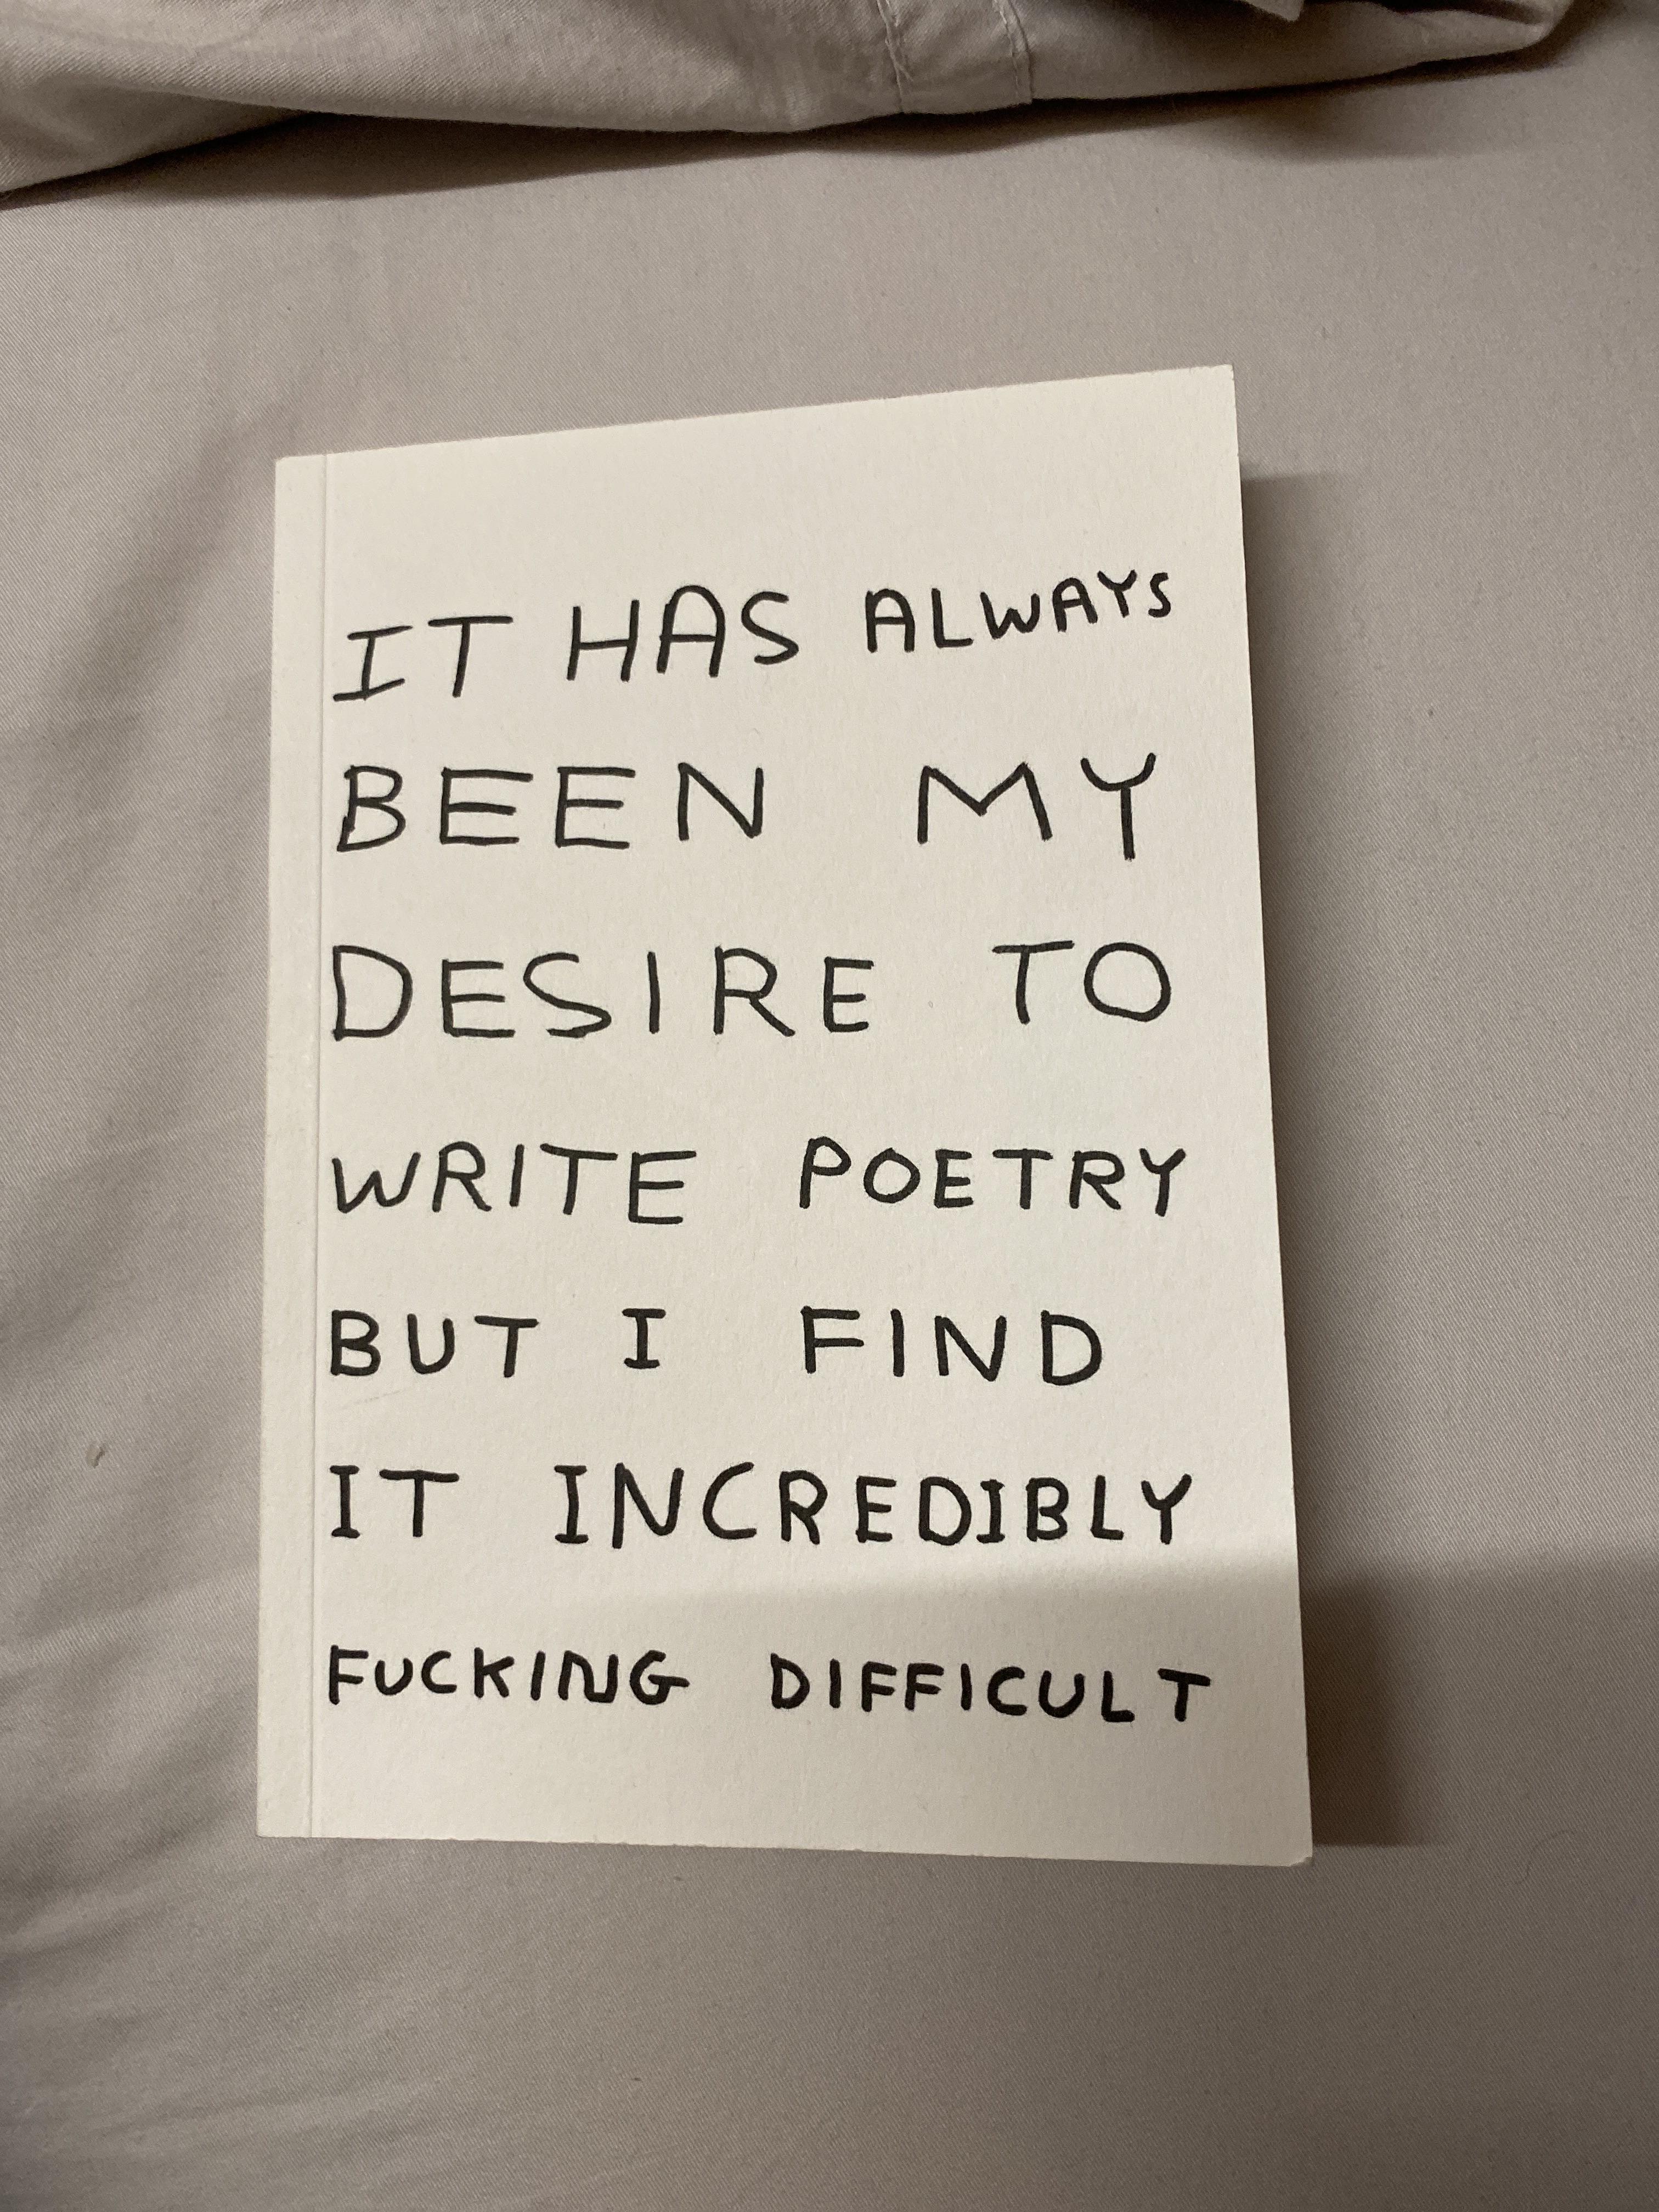 IT HAS ALWAYS
BEEN MY
DESIRE TO
WRITE POETRY
BUT I FIND
IT INCREDIBLY
FUCKING DIFFICULT